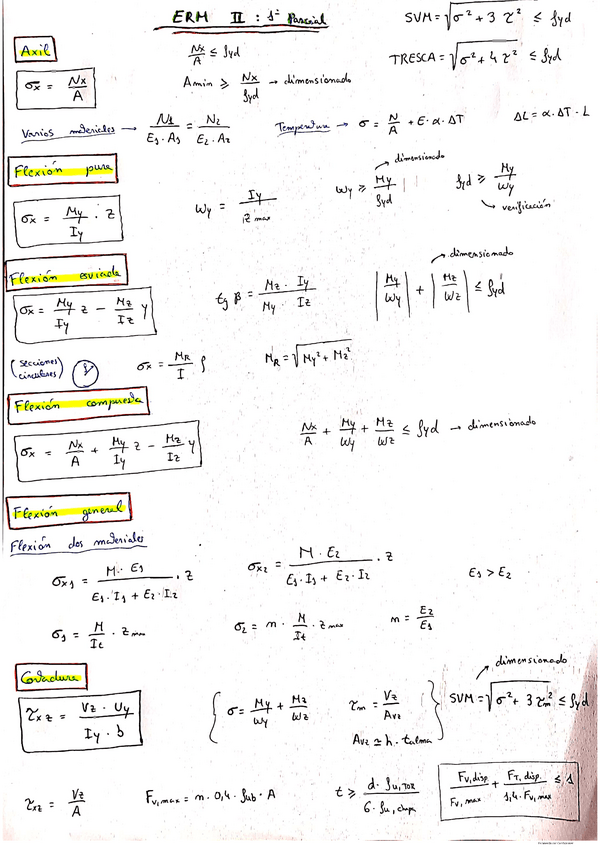 ERM II : 1º Parcial
SVM = √(σ² + 3 τ²) ≤ fyd
Axil
Nx/A ≤ fyd
TRESCA = √(σ² + 4 τ²) ≤ fyd
σx = Nx/A
Amin ≥ Nx/fyd → dimensionado
Varios materiales → N1/(E1·A1) = N2/(E2·A2)
Temperatura → σ = N/A + E·α·ΔT
ΔL = α·ΔT·L
Flexión pura
σx = My/Iy · z
Wy = Iy/zmax
Wy ≥ My/fyd → dimensionado
fyd ≥ My/Wy → verificación
Flexión esviada
σx = My/Iy z − Mz/Iz y
tg β = (Mz · Iy)/(My · Iz)
|My/Wy| + |Mz/Wz| ≤ fyd → dimensionado
(secciones circulares)
σx = MR/I ρ
MR = √(My² + Mz²)
Flexión compuesta
σx = Nx/A + My/Iy z − Mz/Iz y
Nx/A + My/Wy + Mz/Wz ≤ fyd → dimensionado
Flexión general
Flexión dos materiales
σx1 = (M · E1)/(E1·I1 + E2·I2) · z
σx2 = (M · E2)/(E1·I1 + E2·I2) · z
E1 > E2
σ1 = M/It · zmax
σ2 = n · M/It · zmax
n = E2/E1
Cortadura
τxz = (Vz · Uy)/(Iy · b)
{ σ = My/Wy + Mz/Wz
τm = Vz/Avz
Avz ≃ h · talma }
SVM = √(σ² + 3 τm²) ≤ fyd → dimensionado
τxz = Vz/A
Fv,max = n · 0,4 · fub · A
t ≥ (d · fu,tor)/(6 · fu,chapa)
Fv,disp./Fv,max + FT,disp./(1,4 · Fv,max) ≤ 1